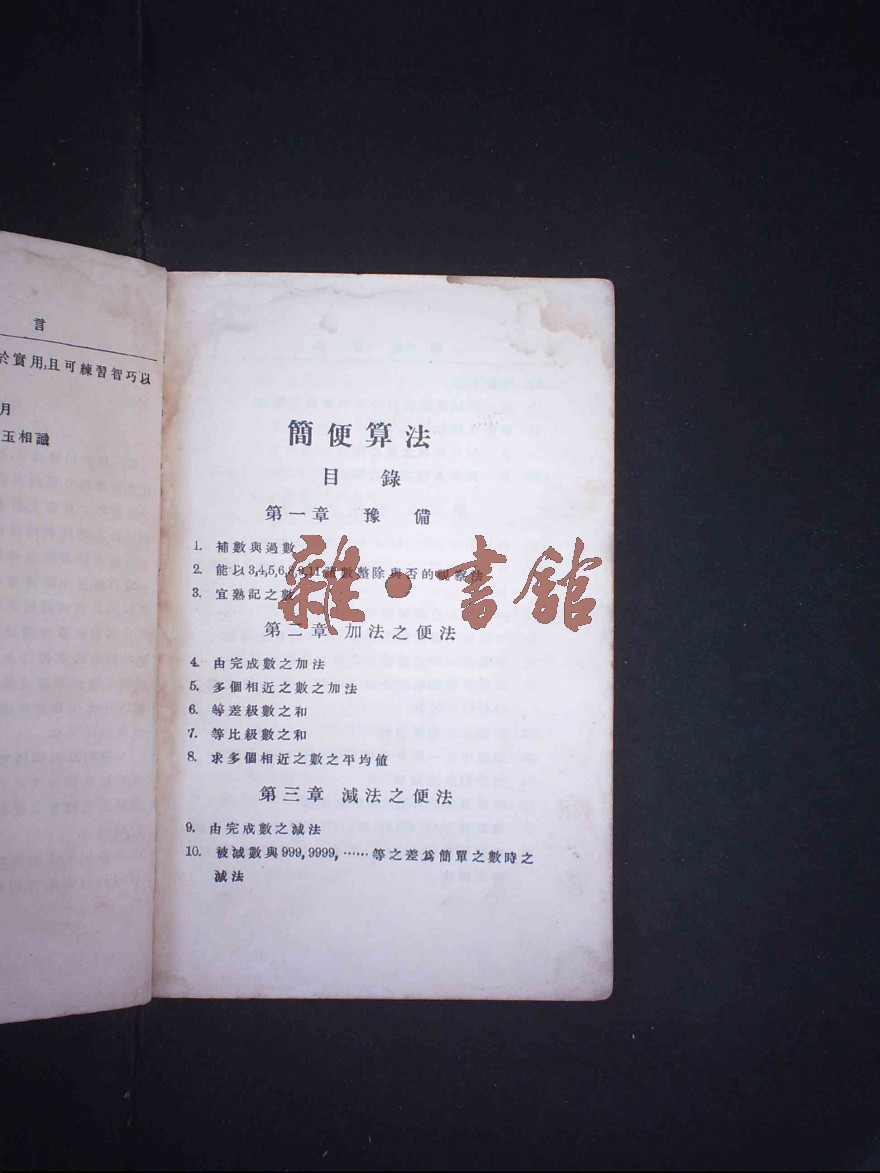 言
於實用,且可練習智巧以
月
玉相識
簡便算法
目錄
第一章 豫備
1. 補數與過數
2. 能以3,4,5,6,8,9,11諸數整除與否的視察法
3. 宜熟記之數
雜·書館
第二章 加法之便法
4. 由完成數之加法
5. 多個相近之數之加法
6. 等差級數之和
7. 等比級數之和
8. 求多個相近之數之平均値
第三章 減法之便法
9. 由完成數之減法
10. 被減數與999,9999,……等之差爲簡單之數時之
減法